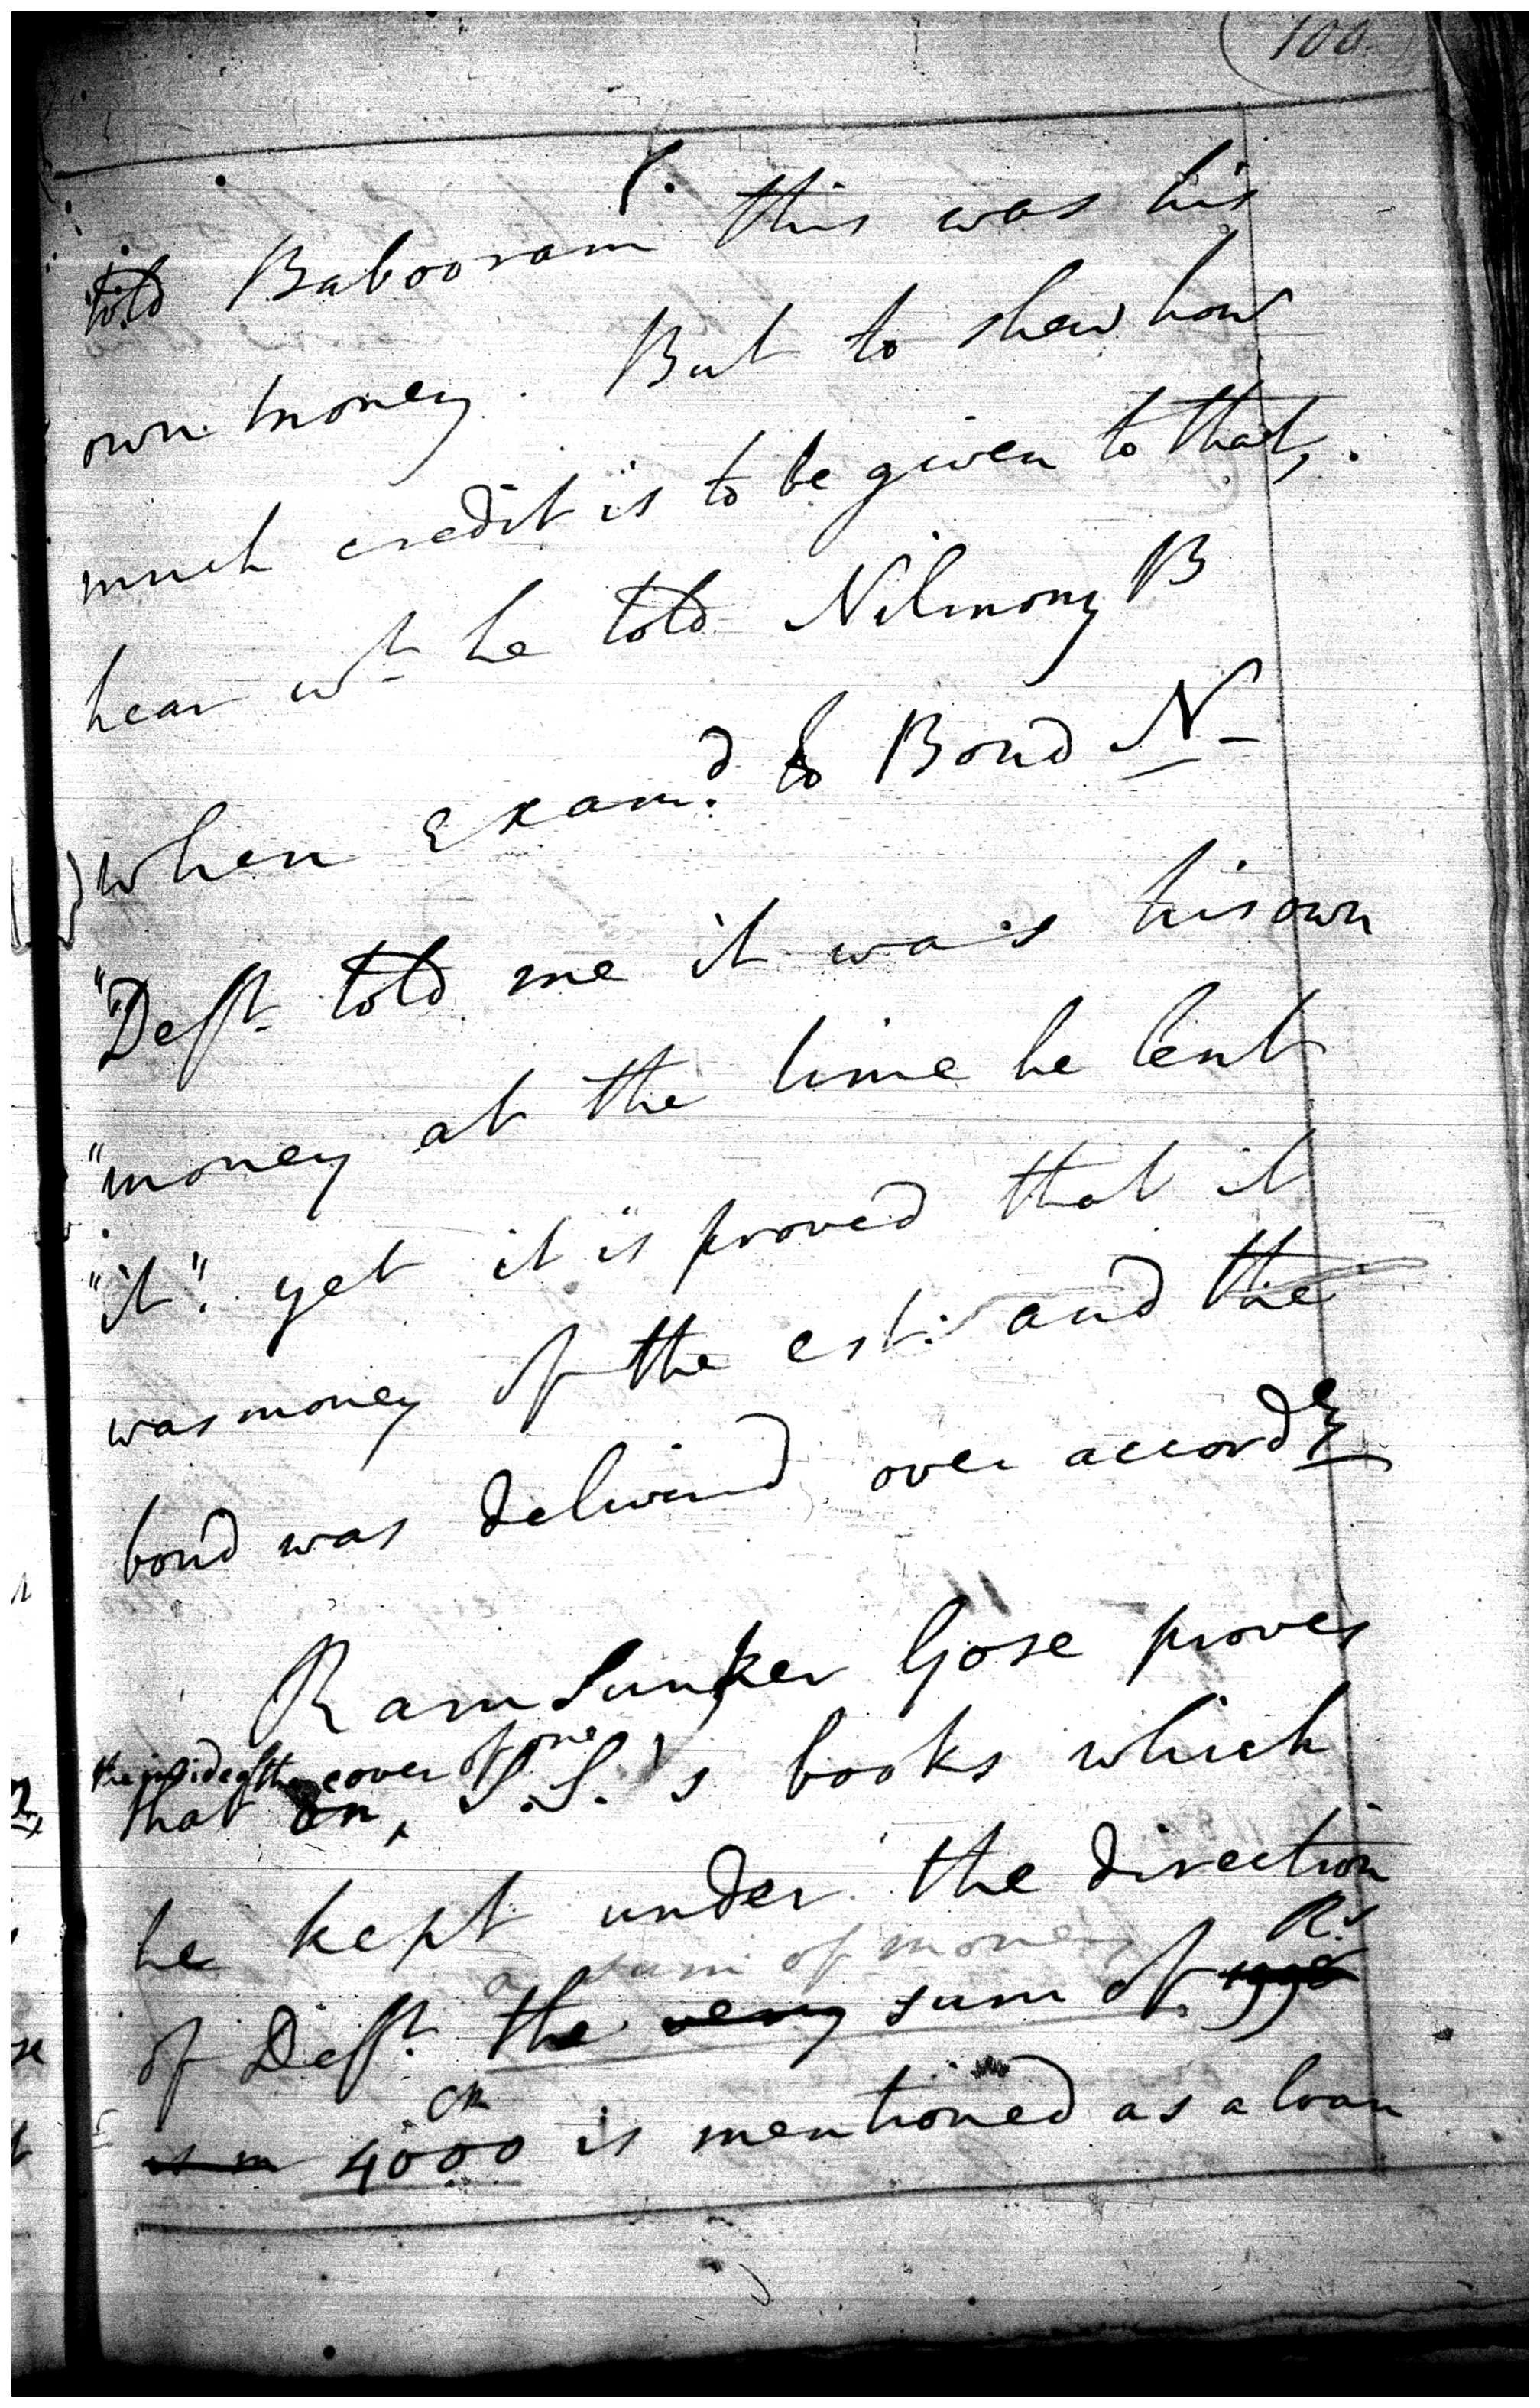 100.
told Babooram this was his
own money. But to shew how
much credit is to be given to that,
hear wt he told Nilmony B
when Examd to Bond N-
"Deft told me it was his own
"money at the time he lent
"it". yet it is proved that it
was money of the est: and the
bond was delivered over accordg
Ram Sunker Gose proves
the inside of the cover of one
that on, S.S.'s books which
he kept under the direction
a sum of money Rs
of Deft. the very sum of
4000 is mentioned as a loan